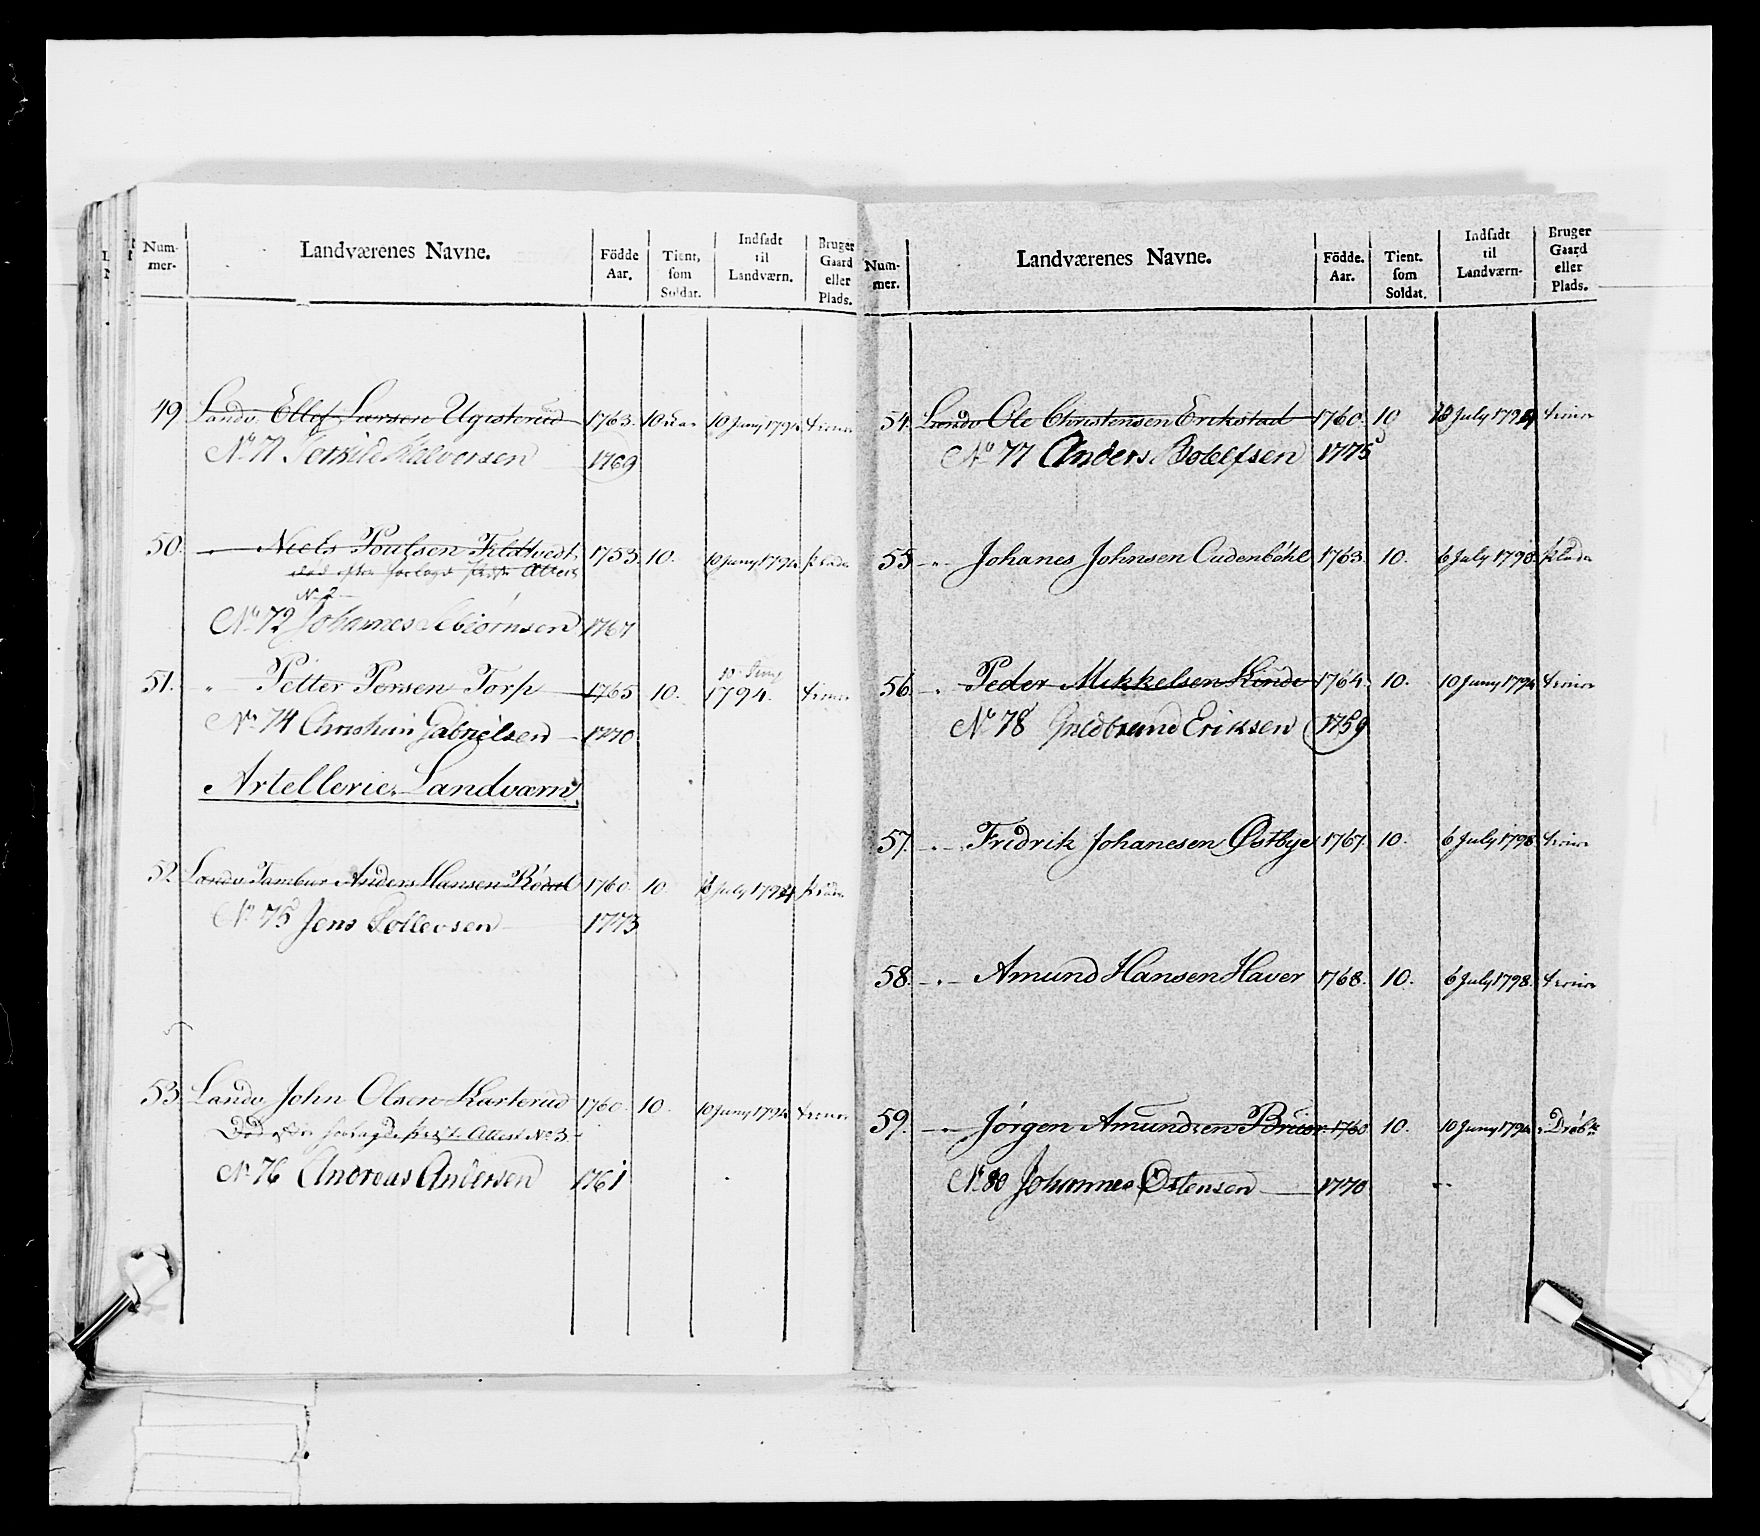 Num-mer- Landværenes Navne. Födde Aar. Tient, som Soldat. Indsadt til Landværn. Bruger Gaard eller Plads.
49 Landv Ellef Larsen Ugisterud 1763. 10 10 Juny 1794
No 71 Halvorsen 1769
50. Niels Poulsen 1753 10. 10 Juny 1794 plads
død efter forlagt Attest
No 2
No 72 Johannes 1767
51. Petter Persen Torp 1765 10. 10 Juny 1794.
No 74 Christian Gabrielsen 1770
Artellerie Landværn
52 Landv Tambur Anders Hansen 1760. 10 July 1794 plads
No 75 Jens 1773
53. Landv John Olsen Karterud 1760. 10. 10 Juny 1794
Död efter forlagde Attest No 3
No 76 Andreas Andersen 1761
Num-mer. Landværenes Navne. Födde. Aar. Tient. som Soldat. Indsadt til Landværn- Bruger Gaard eller Plads.
54. Landv Ole Christensen Erikstad 1760. 10 July 1794
No 77 Anders 1775
55 Johanes Johnsen 1763. 10. 6 July 1798. plads
56 Peder Mikkelsen 1764. 10. 10 Juny 1794
No 78 Guldbrand Eriksen 1759
57. Fridrik Johanesen Østbye 1767. 10. 6 July 1798
58. Amund Hansen Haver 1768. 10. 6 July 1798.
59. Jørgen Amundsen 1760 10. 10 Juny 1794
No 80 Johannes Østensen 1770